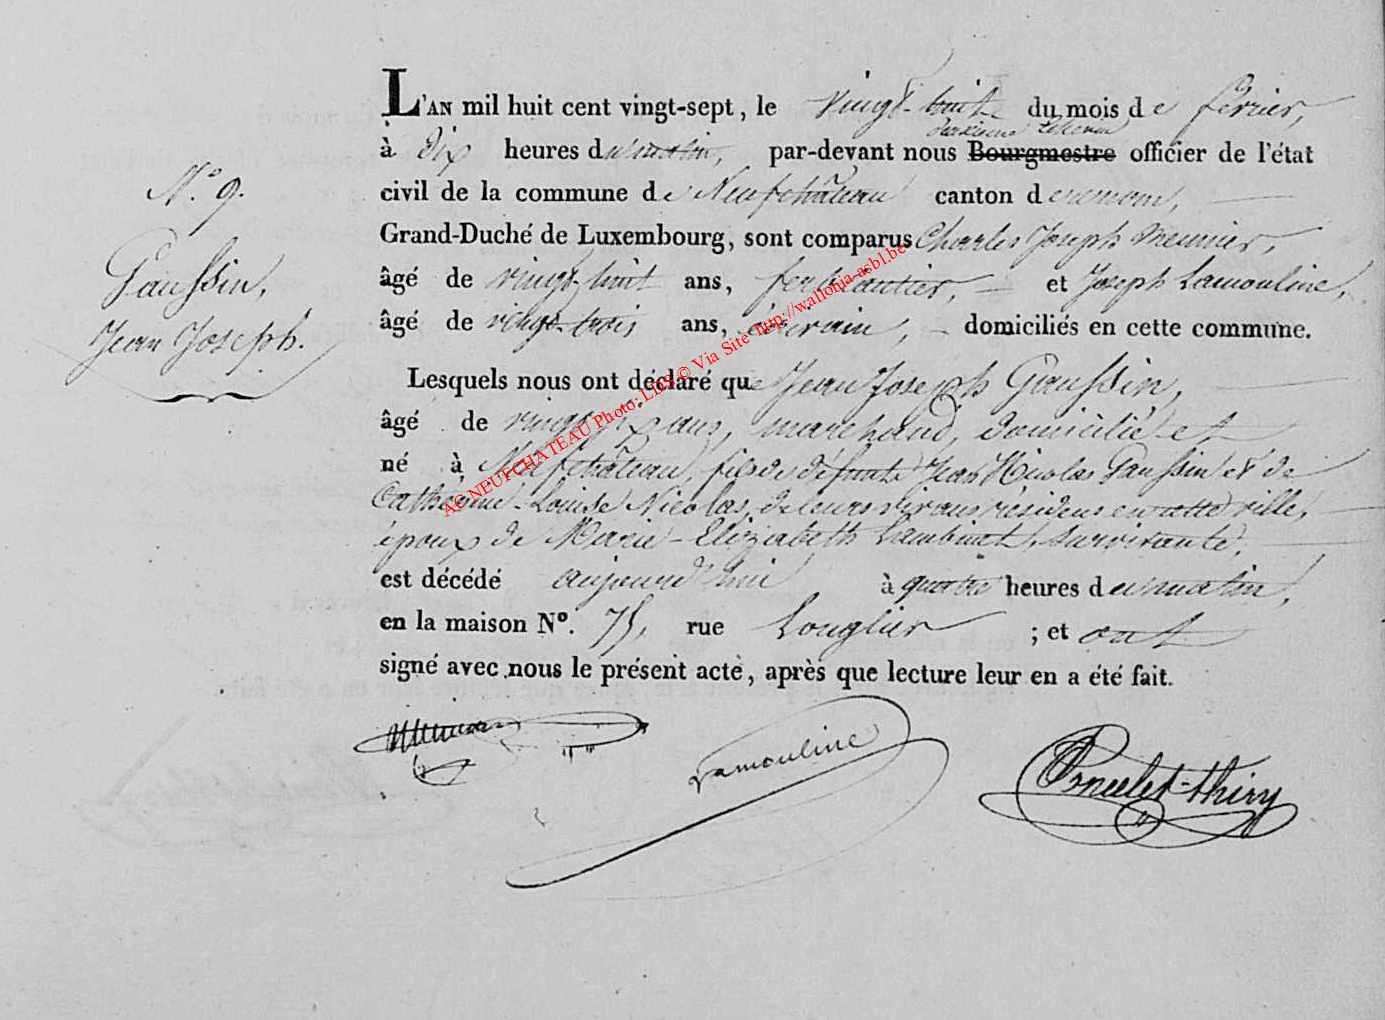 N.° 9.
Gaussin,
Jean Joseph.
L'AN mil huit cent vingt-sept, le vingt-huit du mois de février,
deuxième Echevin
à dix heures du matin, par-devant nous Bourgmestre officier de l'état
civil de la commune de Neufchâteau canton d
Grand-Duché de Luxembourg, sont comparus Charles Joseph Meunier,
âgé de vingt-huit ans, ferblantier, et Joseph Lamouline,
âgé de vingt-trois ans, écrivain, domiciliés en cette commune.
Lesquels nous ont déclaré que Jean Joseph Gaussin,
âgé de ans, marchand, domicilié et
né à Neufchâteau, fils de défunt Jean Nicolas Gaussin et de
Catherine-Louise Nicolas, de leurs vivans résidens en cette ville,
époux de Marie-Elizabeth Lambinet, survivante,
est décédé aujourd'hui à quatre heures du matin,
en la maison N°. 75, rue Longlier ; et ont
signé avec nous le présent acte, après que lecture leur en a été fait.
Meunier Lamouline Poncelet-thiry
AC NEUFCHATEAU Photo: LDS © Via Site http://wallonia-asbl.be